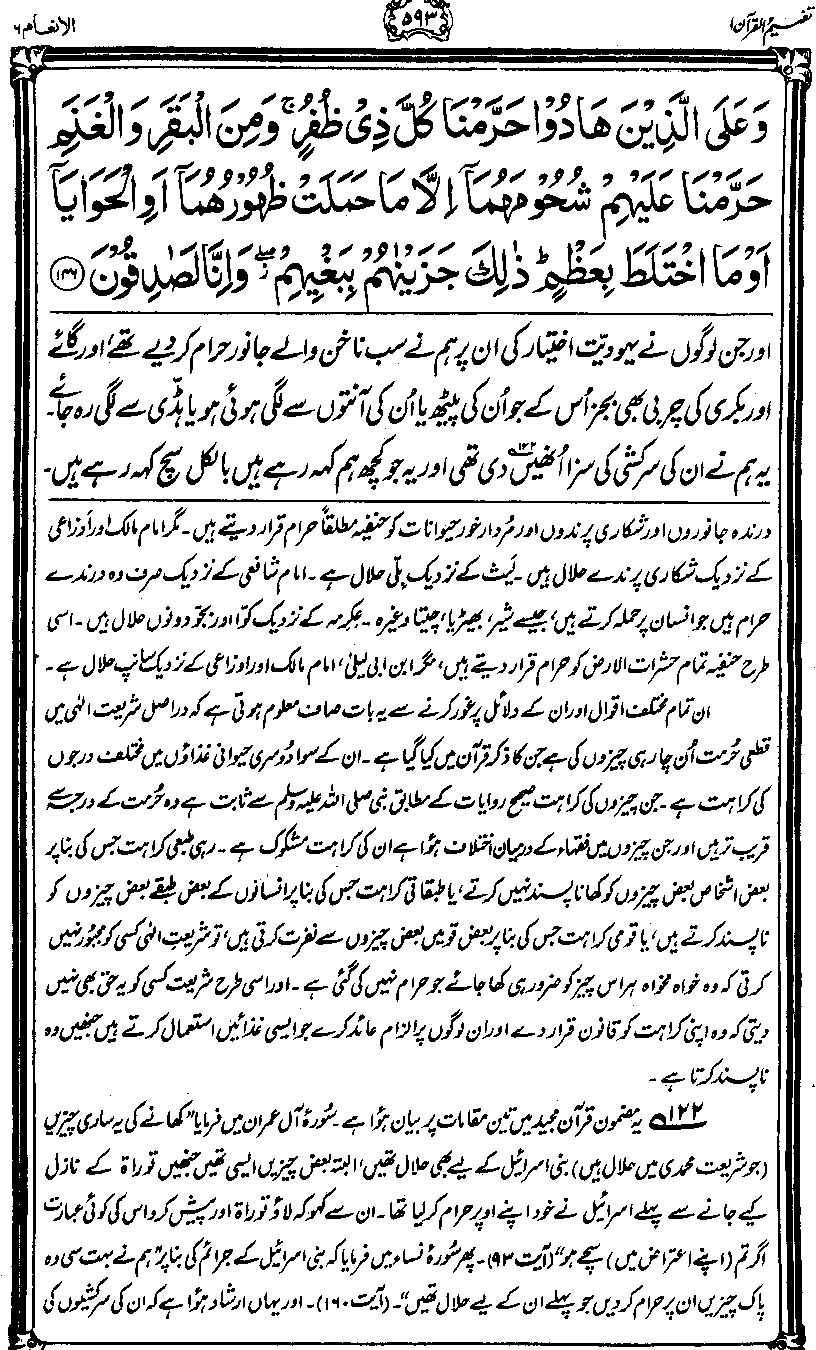 تفہیم القرآن ۱
۵۹۳
الانعام ۶
وَعَلَى الَّذِيْنَ هَادُوْا حَرَّمْنَا كُلَّ ذِيْ ظُفُرٍ ۚ وَمِنَ الْبَقَرِ وَالْغَنَمِ
حَرَّمْنَا عَلَيْهِمْ شُحُوْمَهُمَاۤ اِلَّا مَا حَمَلَتْ ظُهُوْرُهُمَاۤ اَوِ الْحَوَايَاۤ
اَوْ مَا اخْتَلَطَ بِعَظْمٍ ؕ ذٰلِكَ جَزَيْنٰهُمْ بِبَغْيِهِمْ ۖ وَاِنَّا لَصٰدِقُوْنَ ﴿۱۴۶﴾
اور جن لوگوں نے یہودیّت اختیار کی ان پر ہم نے سب ناخن والے جانور حرام کر دیے تھے، اور گائے
اور بکری کی چربی بھی بجز اُس کے جو اُن کی پیٹھ یا اُن کی آنتوں سے لگی ہوئی ہو یا ہڈّی سے لگی رہ جائے۔
یہ ہم نے ان کی سرکشی کی سزا اُنھیں۱۲۲ دی تھی اور یہ جو کچھ ہم کہہ رہے ہیں بالکل سچ کہہ رہے ہیں۔
درندہ جانوروں اور شکاری پرندوں اور مُردار خور حیوانات کو حنفیہ مطلقاً حرام قرار دیتے ہیں۔ مگر امام مالک اور اَوزاعی
کے نزدیک شکاری پرندے حلال ہیں۔ لَیث کے نزدیک بِلّی حلال ہے۔ امام شافعی کے نزدیک صرف وہ درندے
حرام ہیں جو انسان پر حملہ کرتے ہیں، جیسے شیر، بھیڑیا، چیتا وغیرہ۔ عِکرمہ کے نزدیک کوّا اور بجّو دونوں حلال ہیں۔ اسی
طرح حنفیہ تمام حشرات الارض کو حرام قرار دیتے ہیں، مگر ابن ابی لیلیٰ، امام مالک اور اوزاعی کے نزدیک سانپ حلال ہے۔
ان تمام مختلف اقوال اور ان کے دلائل پر غور کرنے سے یہ بات صاف معلوم ہوتی ہے کہ دراصل شریعت الٰہی میں
قطعی حُرمت اُن چار ہی چیزوں کی ہے جن کا ذکر قرآن میں کیا گیا ہے۔ ان کے سوا دُوسری حیوانی غذاؤں میں مختلف درجوں
کی کراہت ہے۔ جن چیزوں کی کراہت صحیح روایات کے مطابق نبی صلی اللہ علیہ وسلم سے ثابت ہے وہ حُرمت کے درجہ سے
قریب تر ہیں اور جن چیزوں میں فقہاء کے درمیان اختلاف ہؤا ہے ان کی کراہت مشکوک ہے۔ رہی طبعی کراہت جس کی بنا پر
بعض اشخاص بعض چیزوں کو کھانا پسند نہیں کرتے، یا طبقاتی کراہت جس کی بنا پر انسانوں کے بعض طبقے بعض چیزوں کو
ناپسند کرتے ہیں، یا قومی کراہت جس کی بنا پر بعض قومیں بعض چیزوں سے نفرت کرتی ہیں، تو شریعتِ الٰہی کسی کو مجبُور نہیں
کرتی کہ وہ خواہ مخواہ ہر اس چیز کو ضرور ہی کھا جائے جو حرام نہیں کی گئی ہے۔ اور اسی طرح شریعت کسی کو یہ حق بھی نہیں
دیتی کہ وہ اپنی کراہت کو قانون قرار دے اور ان لوگوں پر الزام عائد کرے جو ایسی غذائیں استعمال کرتے ہیں جنھیں وہ
ناپسند کرتا ہے۔
۱۲۲ یہ مضمون قرآن مجید میں تین مقامات پر بیان ہؤا ہے۔ سُورۂ آلِ عمران میں فرمایا ”کھانے کی یہ ساری چیزیں
(جو شریعت محمدی میں حلال ہیں) بنی اسرائیل کے لیے بھی حلال تھیں، البتہ بعض چیزیں ایسی تھیں جنھیں توراۃ کے نازل
کیے جانے سے پہلے اسرائیل نے خود اپنے اوپر حرام کر لیا تھا۔ ان سے کہو کہ لاؤ توراۃ اور پیش کرو اس کی کوئی عبارت
اگر تم (اپنے اعتراض میں) سچے ہو“ (آیت ۹۳)۔ پھر سُورۂ نساء میں فرمایا کہ بنی اسرائیل کے جرائم کی بنا پر ”ہم نے بہت سی وہ
پاک چیزیں ان پر حرام کر دیں جو پہلے ان کے لیے حلال تھیں“۔ (آیت ۱۶۰)۔ اور یہاں ارشاد ہؤا ہے کہ ان کی سرکشیوں کی